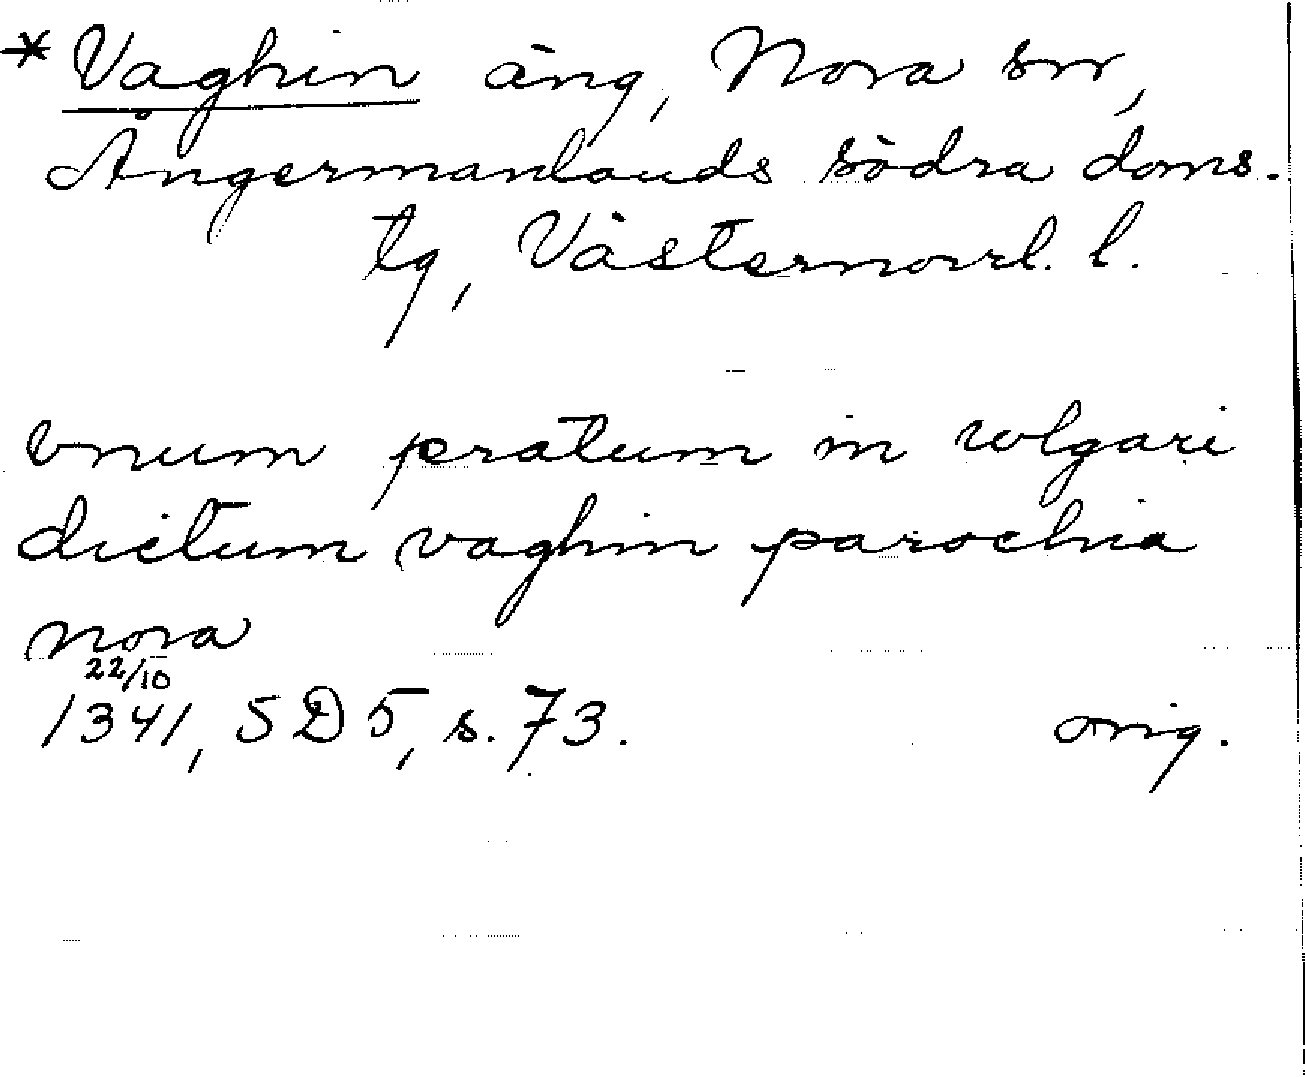 * Vaghin äng, Nora sn,
Ångermanlands södra doms.
tg, Västernorrl. l.
vnum pratum in wlgari
dictum vaghin parochia
nora
22/10
1341, SD 5, s. 73. orig.